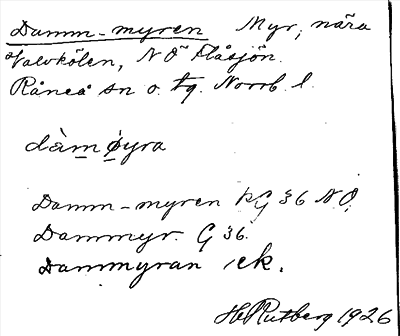 Damm-myren Myr, nära
Valvkölen, NÖ Flåsjön.
Råneå sn o. tg. Norrb. l.
dàm øyra
Damm-myren kG 36 NO,
Dammyr. G 36.
Dammyran ek.
H Rutberg 1926